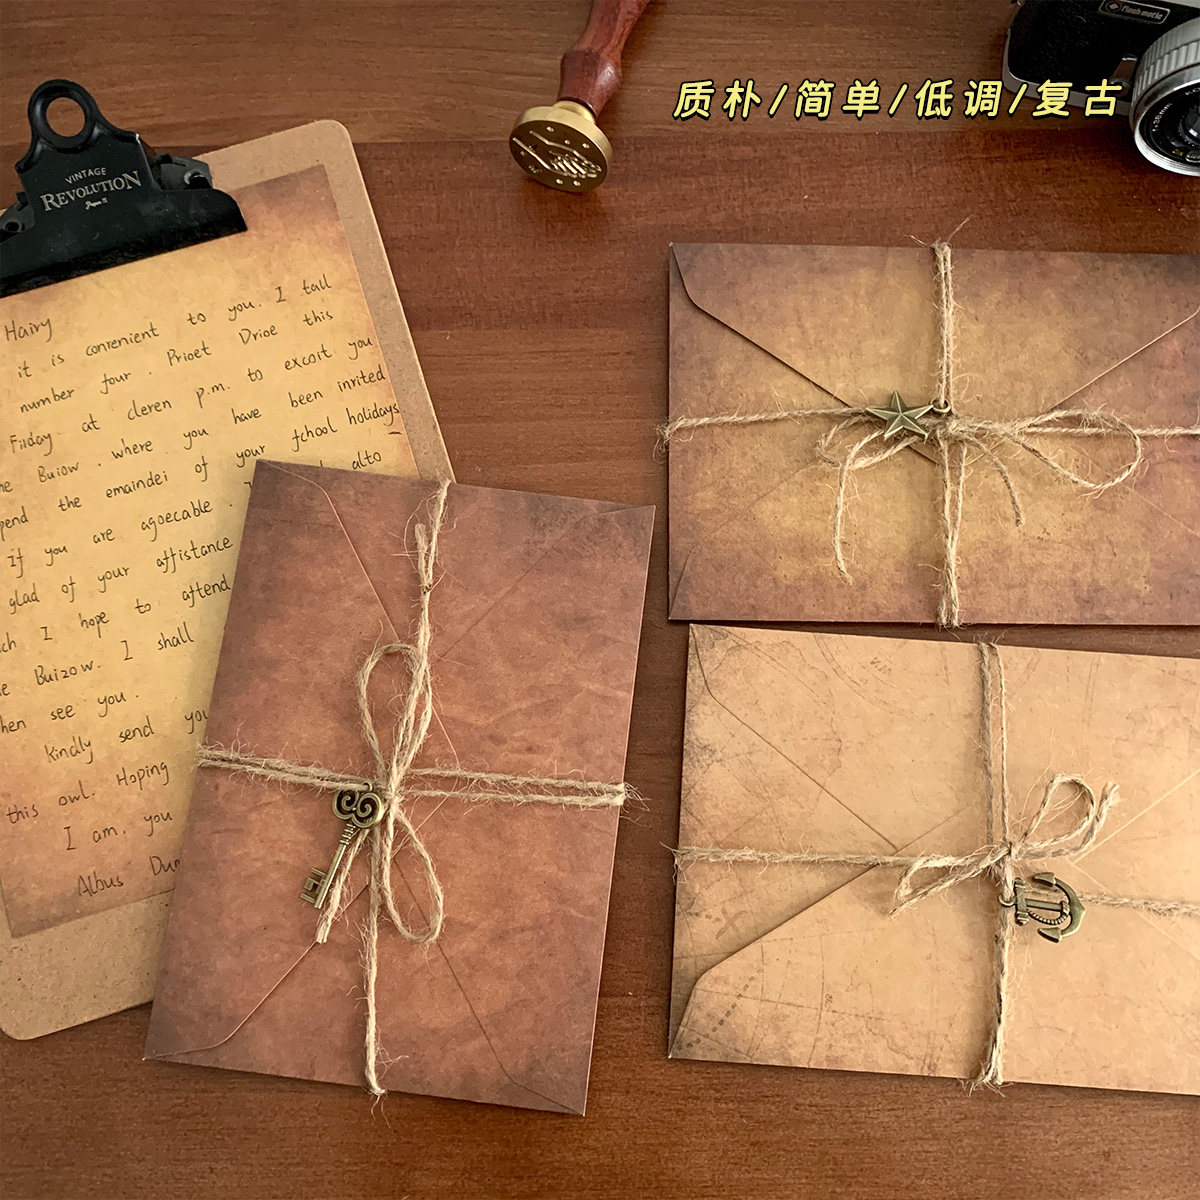 质朴/简单/低调/复古
flashmatic
VINTAGE
REVOLUTION
Hairy
it is conrenient to you. I tall
number four. Prioet Drioe this
Fiiday at cleren p.m. to excoit you
Buiow. where you have been inrited
the emaindei of your fchool holidays
If you are agoecable. alto
glad of your affistance
I hope to attend
Buizow. I shall
see you.
kindly send you
this owl. Hoping
I am. you
Albus Dum